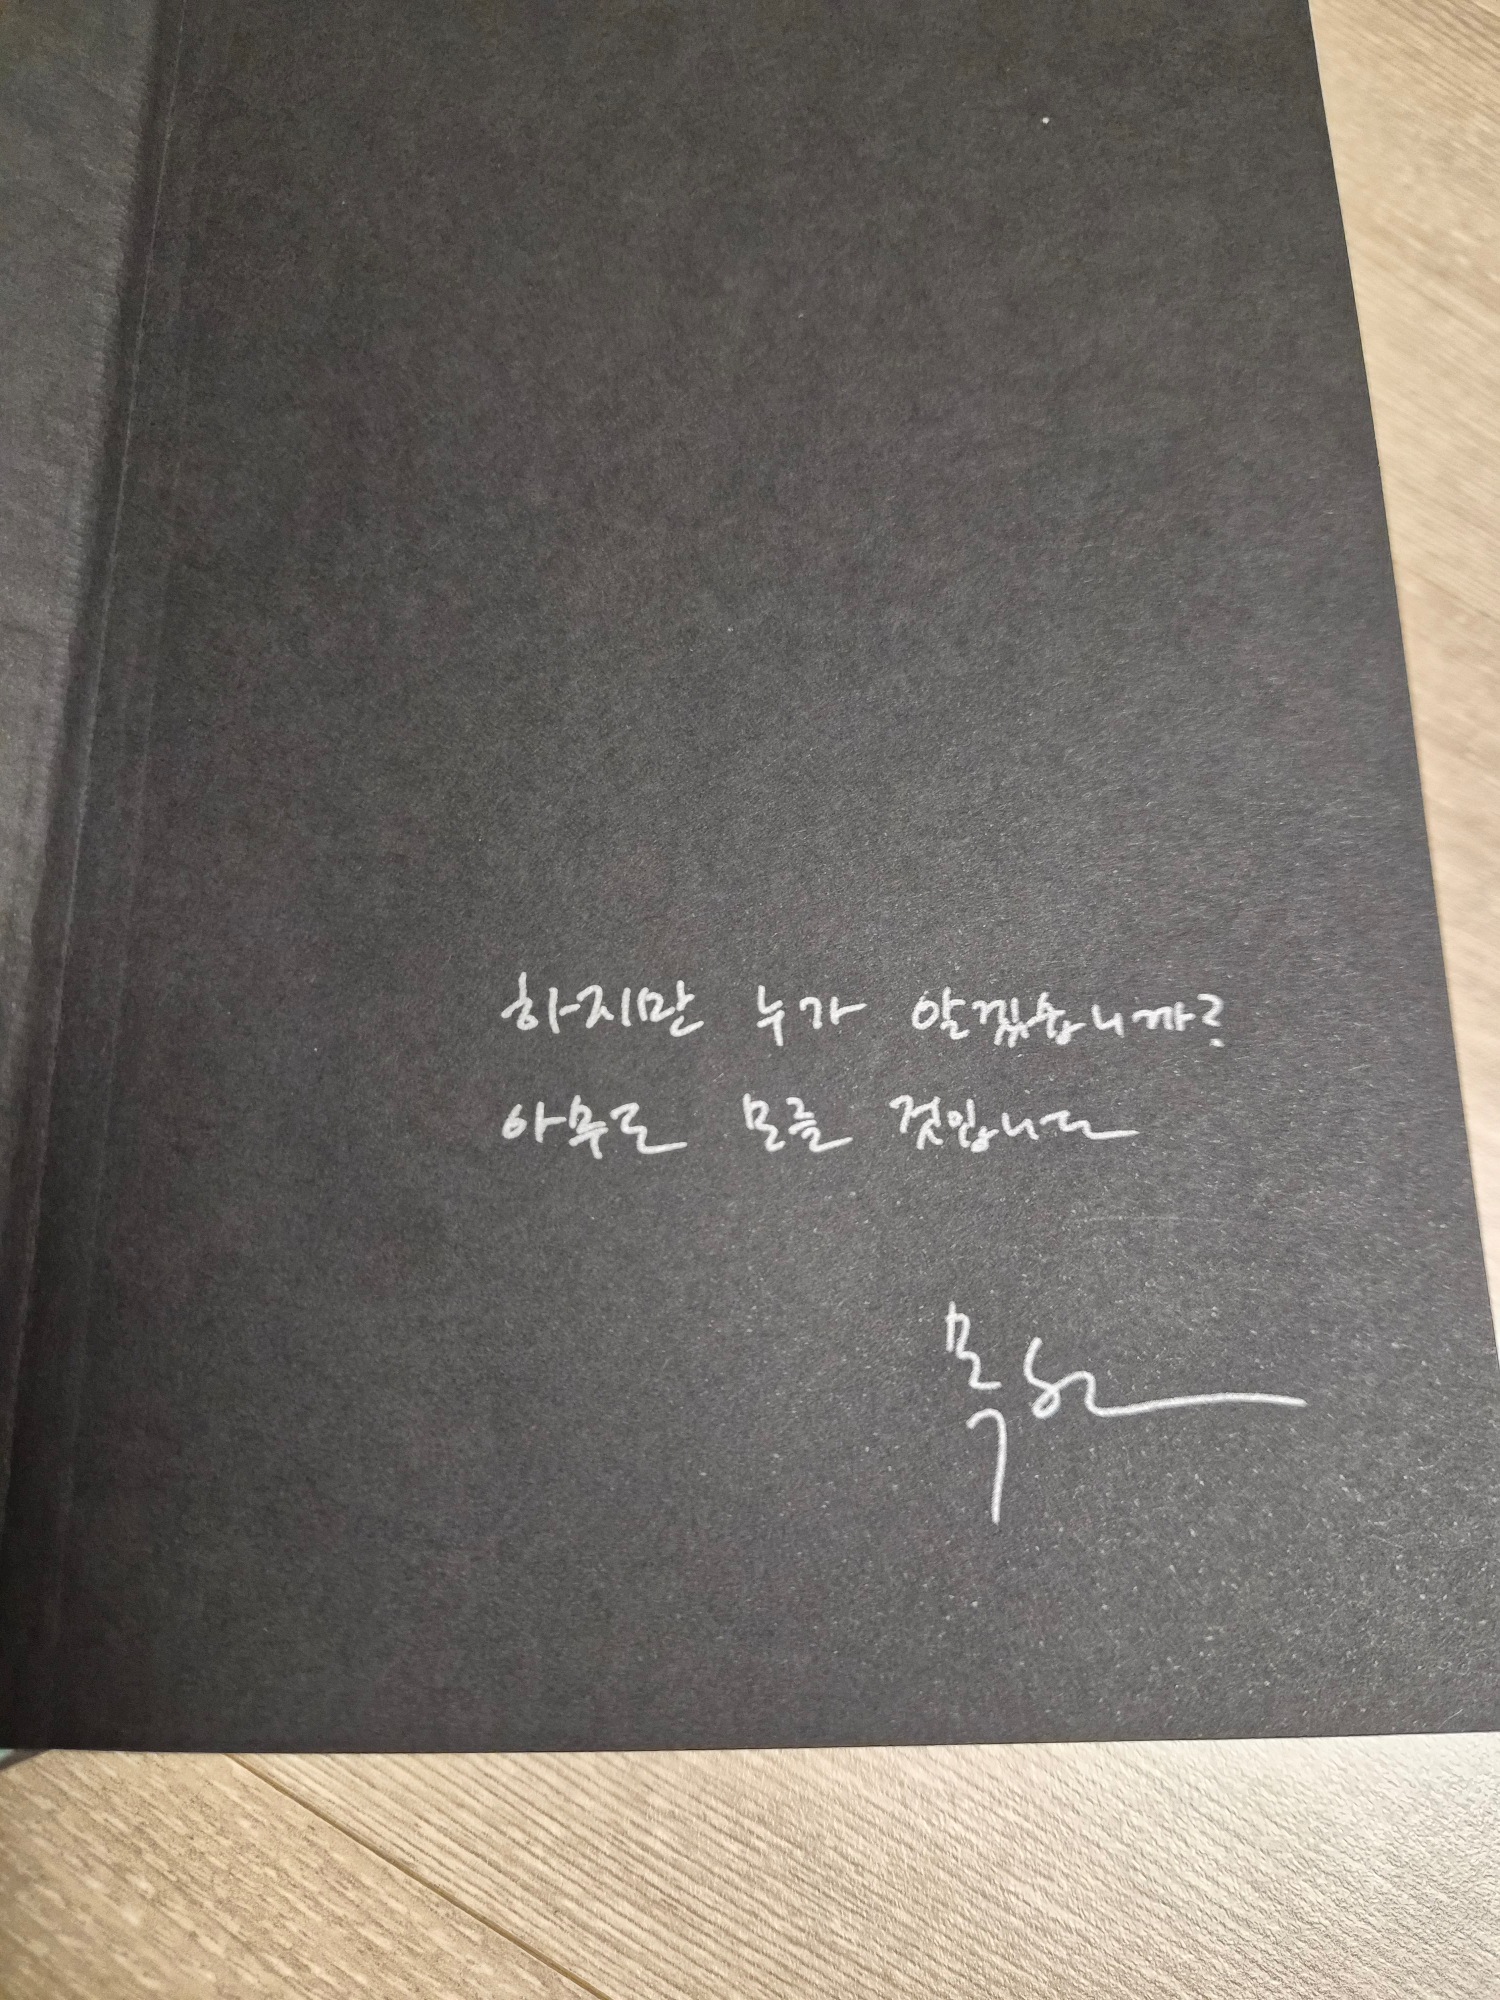 하지만 누가 알겠습니까?
아무도 모를 것입니다